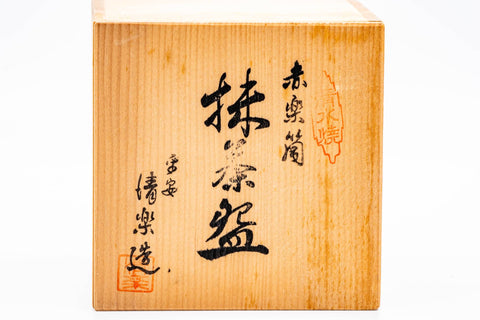 清水焼
赤楽筒
抹茶盌
平安
清楽造